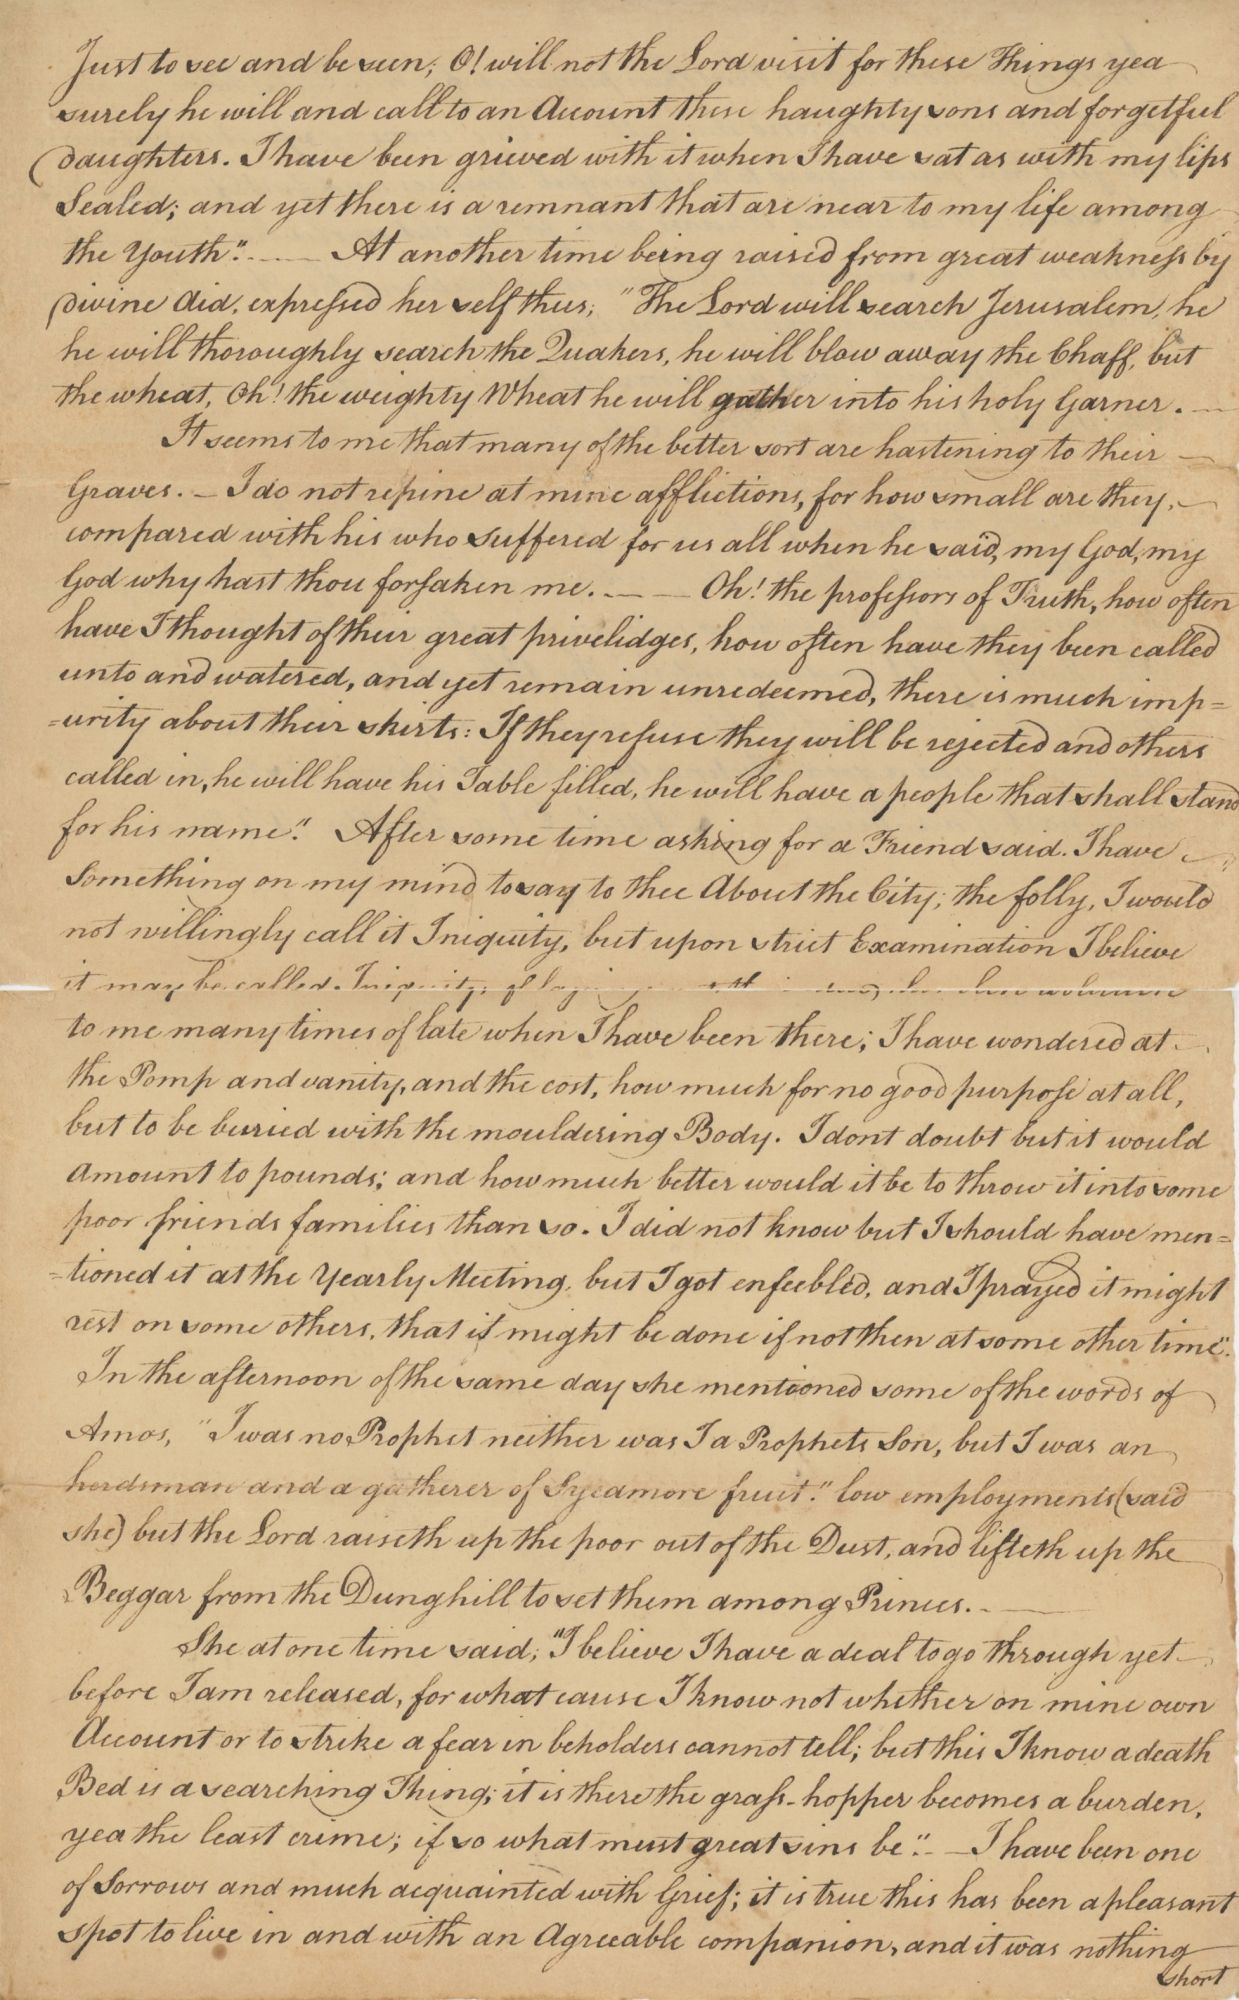 Just to see and be seen; O! will not the Lord visit for these Things yea
surely he will and call to an Account these haughty sons and forgetful
daughters. I have been grieved with it when I have sat as with my lips
Sealed; and yet there is a remnant that are near to my life among
the Youth". — At another time being raised from great weakness by
divine Aid, expressed her self thus; "The Lord will search Jerusalem, he
he will thoroughly search the Quakers, he will blow away the Chaff, but
the wheat, Oh! the weighty Wheat he will gather into his holy Garner. —
It seems to me that many of the better sort are hastening to their —
Graves. — I do not repine at mine afflictions, for how small are they, —
compared with his who suffered for us all when he said, my God, my
God why hast thou forsaken me. — — Oh! the professors of Truth, how often
have I thought of their great privelidges, how often have they been called
unto and watered, and yet remain unredeemed, there is much imp=
=urity about their skirts: If they refuse they will be rejected and others
called in, he will have his Table filled, he will have a people that shall stand
for his name". After some time asking for a Friend said. I have —
Something on my mind to say to thee About the City; the folly, I would
not willingly call it Iniquity, but upon strict Examination I believe
it may be called Iniquity; of
to me many times of late when I have been there; I have wondered at —
the Pomp and vanity, and the cost, how much for no good purpose at all,
but to be buried with the mouldering Body. I dont doubt but it would
Amount to pounds; and how much better would it be to throw it into some
poor friends families than so. I did not know but I should have men=
=tioned it at the Yearly Meeting, but I got enfeebled, and I prayed it might
rest on some others, that it might be done if not then at some other time".
In the afternoon of the same day she mentioned some of the words of
Amos, "I was no Prophet neither was I a Prophets Son, but I was an
herdsman and a gatherer of Sycamore fruit." low employments (said
she) but the Lord raiseth up the poor out of the Dust, and lifteth up the
Beggar from the Dunghill to set them among Princes. —
She at one time said; "I believe I have a deal to go through yet —
before I am released, for what cause I know not whether on mine own
Account or to strike a fear in beholders cannot tell; but this I know a death
Bed is a searching Thing; it is there the grass-hopper becomes a burden,
yea the least crime; if so what must great sins be". — I have been one
of Sorrows and much acquainted with Grief; it is true this has been a pleasant
spot to live in and with an Agreeable companion, and it was nothing
short